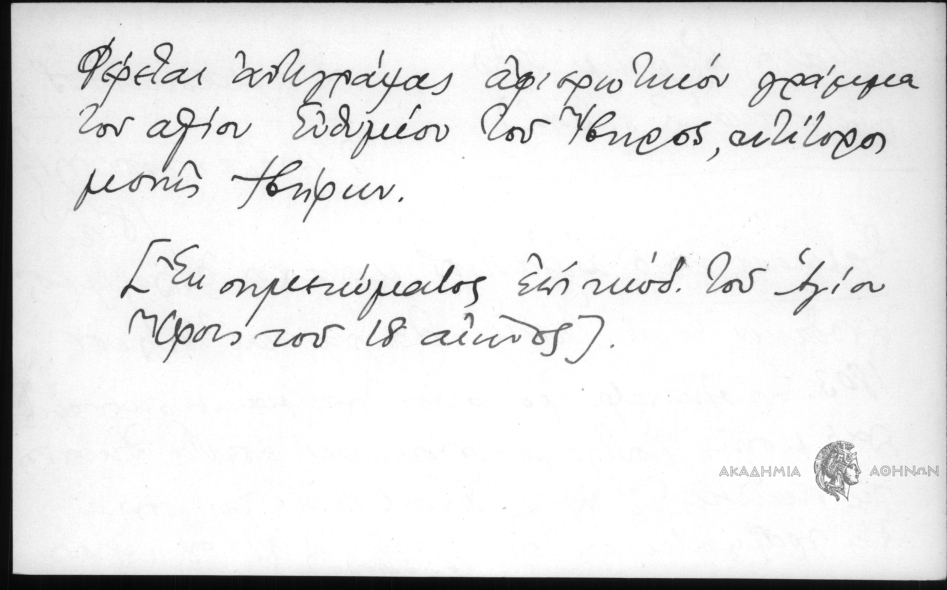 Φέρεται ἀντιγράψας ἀφιερωτικόν γράμμα
τοῦ ἁγίου Εὐθυμίου τοῦ Ἴβηρος, κτίτορος
μονῆς Ἰβήρων.
[Ἐκ σημειώματος ἐπί κώδ. τοῦ Ἁγίου
Ὄρους τοῦ 18 αἰῶνος].
ΑΚΑΔΗΜΙΑ ΑΘΗΝΩΝ